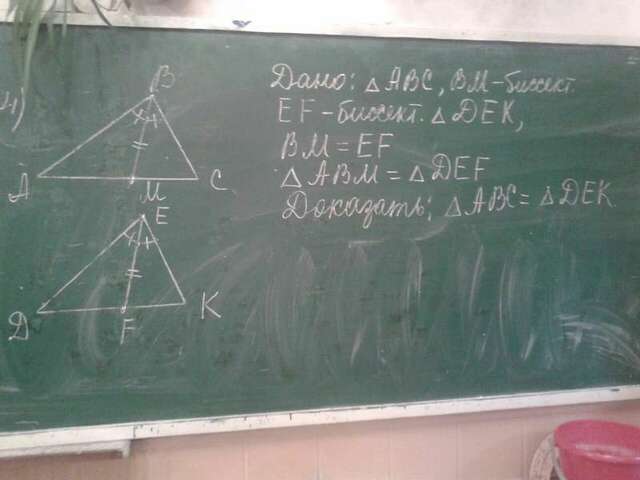 4)
B
A
M
C
E
Д
F
K
Дано: △ ABC, BM - биссект.
EF - биссект. △ DEK,
BM = EF
△ ABM = △ DEF
Доказать: △ ABC = △ DEK